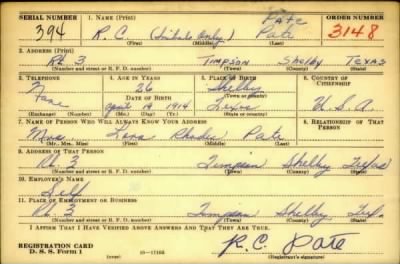 SERIAL NUMBER 1. NAME (Print) Pate ORDER NUMBER
394 R. C. (Initials Only) Pate 3148
(First) (Middle) (Last)
2. ADDRESS (Print)
Rt. 3 Timpson Shelby Texas
(Number and street or R. F. D. number) (Town) (County) (State)
3. TELEPHONE 4. AGE IN YEARS 5. PLACE OF BIRTH 6. COUNTRY OF CITIZENSHIP
26 Shelby
DATE OF BIRTH (Town or county)
April 14 1914 Texas U.S.A
(Exchange) (Number) (Mo.) (Day) (Yr.) (State or country)
7. NAME OF PERSON WHO WILL ALWAYS KNOW YOUR ADDRESS 8. RELATIONSHIP OF THAT PERSON
Mrs. Rhodie Pate
(Mr., Mrs., Miss) (First) (Middle) (Last)
9. ADDRESS OF THAT PERSON
Rt. 3 Timpson Shelby Texas
(Number and street or R. F. D. number) (Town) (County) (State)
10. EMPLOYER'S NAME
Self
11. PLACE OF EMPLOYMENT OR BUSINESS
Rt. 3 Timpson Shelby Tex.
(Number and street or R. F. D. number) (Town) (County) (State)
I AFFIRM THAT I HAVE VERIFIED ABOVE ANSWERS AND THAT THEY ARE TRUE.
R.C. Pate
REGISTRATION CARD
D. S. S. Form 1 (over) (Registrant's signature)